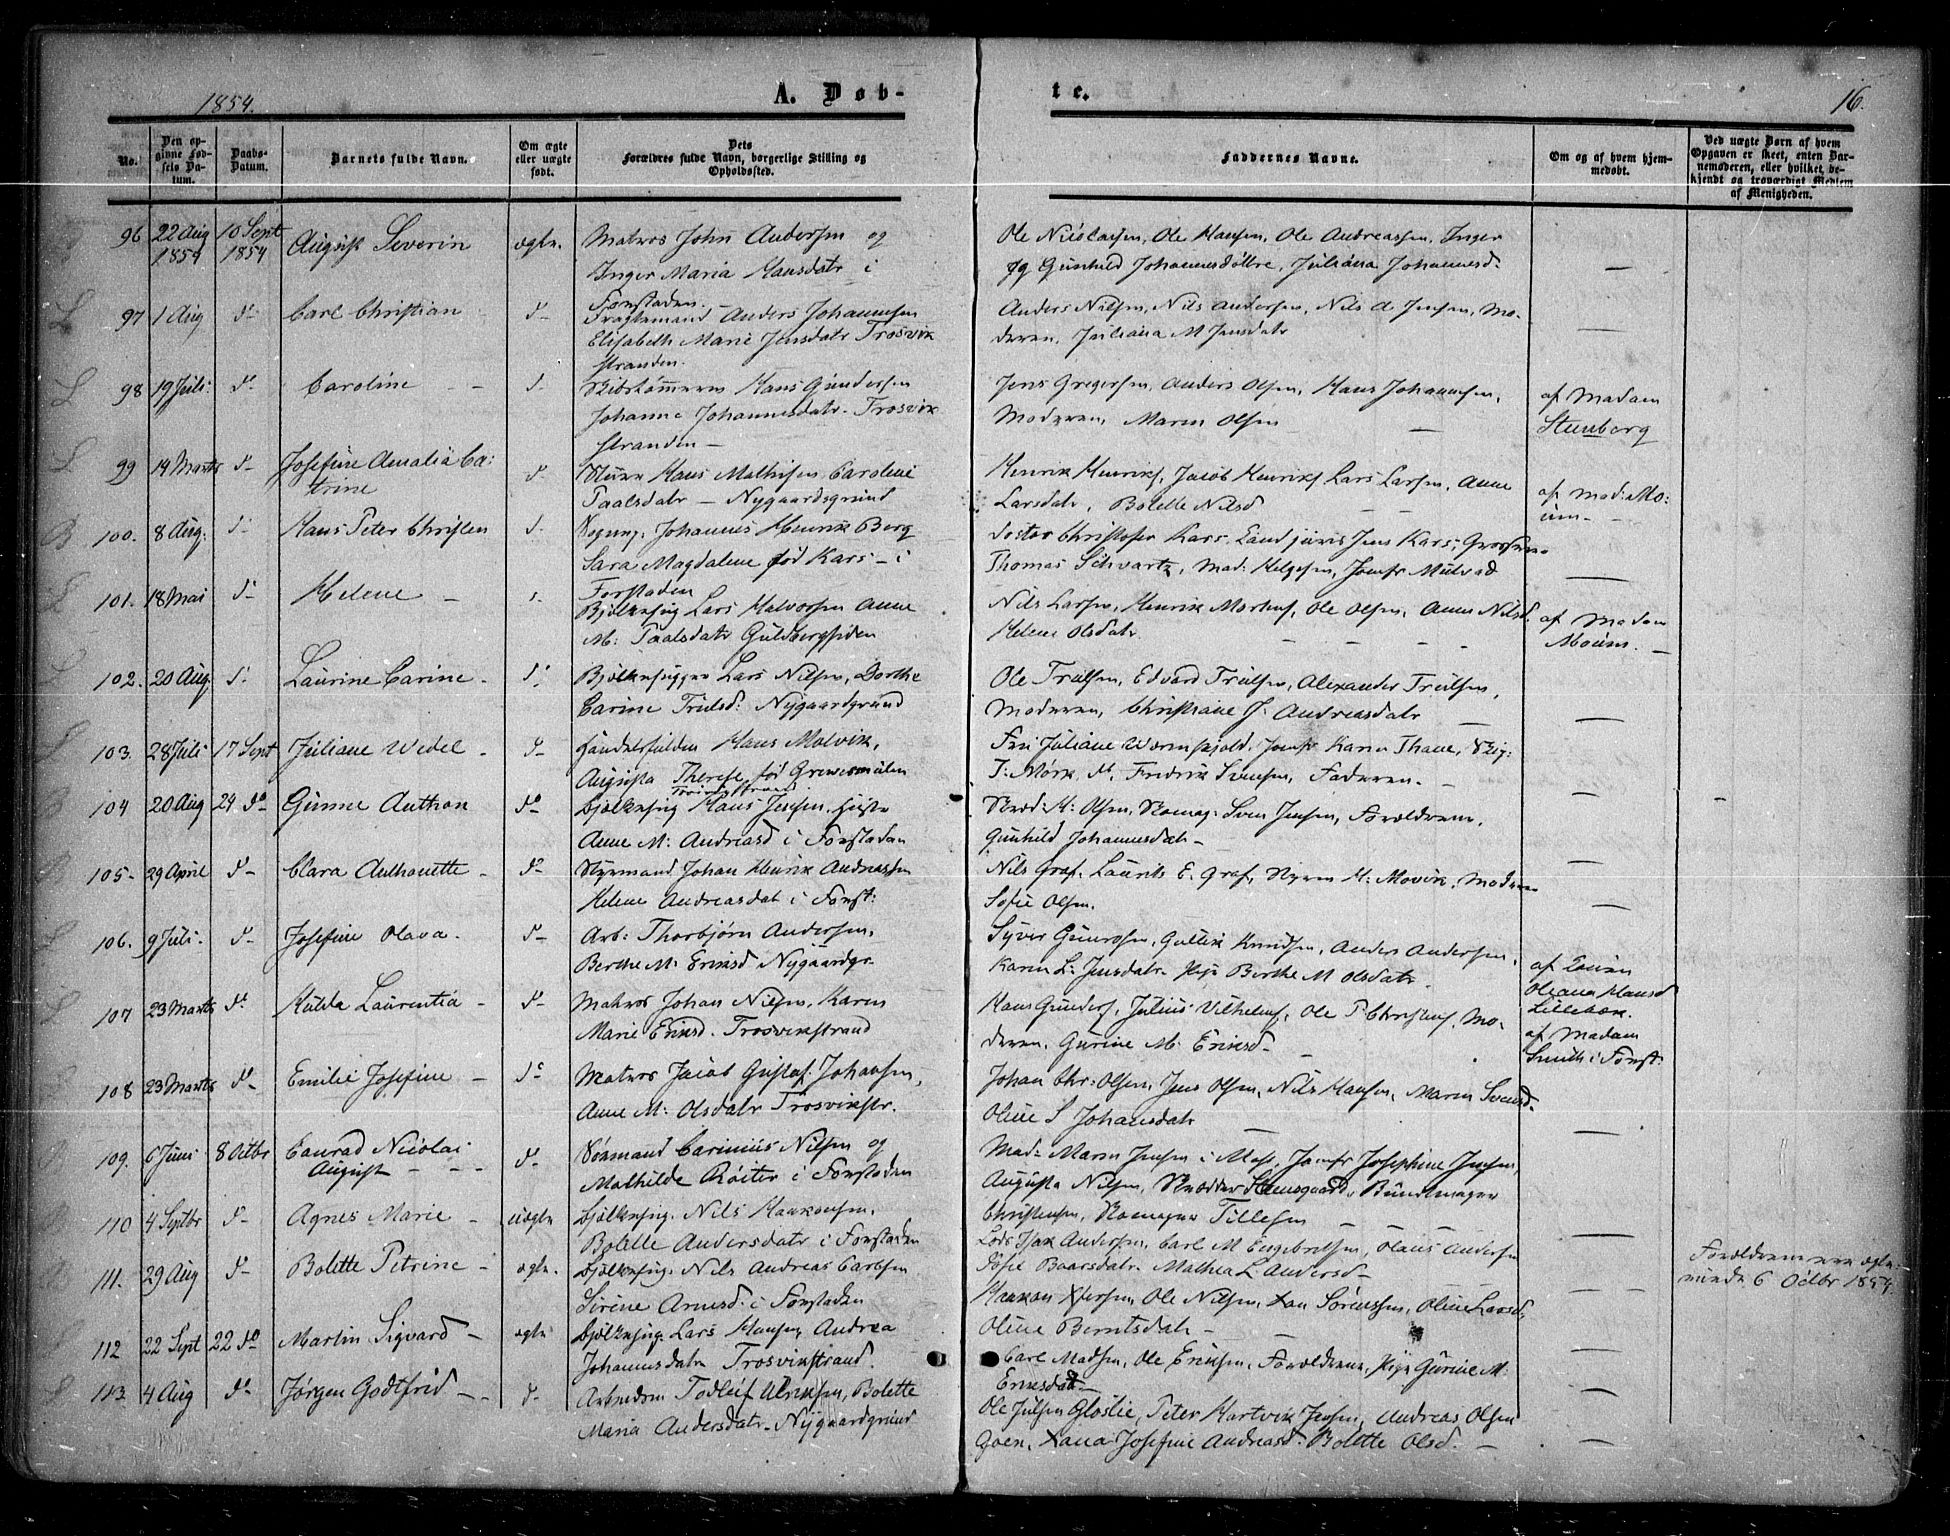 1854.
A. Døb-
te.
16.
No.
Den op-
givne Fød-
sels Da-
tum.
Daabs-
Datum.
Barnets fulde Navn.
Om ægte
eller uægte
født.
Dets
Forældres fulde Navn, borgerlige Stilling og
Opholdssted.
Faddernes Navne.
Om og af hvem hjem-
medøbt.
Ved uægte Børn af hvem
Opgaven er skeet, enten Bar-
nemoderen, eller hvilket be-
kjendt og troværdigt Medlem
af Menigheden.
96 22 Aug 10 Sept August Severin ægte. Matros John Andersen og
1854 1854
Inger Maria Hansdatr i
Forstaden.
Ole Nicolaisen, Ole Hansen, Ole Andreassen, Inger
og Gunhild Johannesdøttre, Juliana Johannesd.
97 1 Aug do Carl Christian d- Fragtemand Anders Johannsen
Elisabeth Marie Jensdatr Trosvik
stranden.
Anders Nilsen, Nils Andersen, Nils A Jensen, Mo-
deren, Juliana M Jensdatr
98 19 Juli do Caroline d- Skibstømmerm Hans Gundersen
Johanne Johannesdatr. Trosvik
stranden -
Jens Gregersen, Anders Olsen, Hans Johannsen,
Moderen, Maren Olsen
af Madam
Steenborg
99 14 Marts d- Josefine Amalia Ca:
trine
d- Hans Mathisen Caroline
Paalsdatr - Nygaardsgrund
Henrik Henriks, Jacob Henriks, Lars Larsen, Anne
Larsdatr, Bolette Nilsd
af Mad: Mo:
um -
100. 8 Aug: d- Hans Peter Christen d. Johannes Henrik Berg
Sara Magdalene fød Kars - i
Forstaden
Doctor Christofer Kars, Jens Kars,
Thomas Schvartz, Mad: Helgesen, Jomfr Mulvad
101. 18 Mai d- Helene - Bjelkehug Lars Halvorsen Anne
M: Paalsdatr Guldbergsiden
Nils Larsen, Henrik Ole Olsen, Anne Nilsd.
Helene Olsdatr.
af Madam
Moum. -
102. 20 Aug d. Laurine Carine - d. Bjelkehugger Lars Nilsen, Dorthe
Carine Trulsd: Nygaardgrund
Ole Trulsen, Edvard Trulsen, Alexander Trulsen,
Moderen, Christiane J. Andreasdatr
103. 28 Juli 17 Sept Juliane Wedel - d- Hans Molvik,
Augusta Therese fød Grewesmülen
Trosvikstrand
Fru Juliane Wormskjold, Jomfr Karen Thaue,
T: Mørk, M. Fredrik Svensen, Faderen. -
104 20 Aug 24 do Gunne Anthon do Bjelkehug Hans Jensen,
Anne M: Andreasd i Forstaden
M: Olsen, Skomag: Sven Jensen, Forældrene,
Gunhild Johannesdatr -
105- 29 April d- Clara Anthonette - do Styrmand Johan Henrik Andreassen
Helene Andreasdat i Forst:
Nils Graf, Laurits E. Graf, Styrm H: Movik, Moderen
Sofie Olsen.
106. 9 Juli. d- Josefine Olava. d- Arb: Thorbjørn Andersen,
Berthe M: Eriksd Nygaardgr.
Syver Gunersen, Gullik Knudsen, Anders Andersen,
Karen L: Jensdatr Pige Berthe M Olsdatr.
af
Oleana Hansd
Lillebæk.
107 23 Marts do Hulda Laurentia - d- Matros Johan Nilsen, Karen
Marie Eriksd. Trosvikstrand
Hans Gunders, Julius Vilhelms, Ole P Christens, Mo-
deren, Gurine M: Eriksd-
af Madam
Smith i Forst:
108 23 Marts do- Emilie Josefine - do Matros Jacob Gustaf Johansen,
Anne M: Olsdatr Trosvikstr.
Johan Chr: Olsen, Jens Olsen, Nils Hansen, Maren Svensd-
Oline S Johansdatr
109. 6 Juni 8 Octbr Conrad Nicolai
August - - -
do- Sømand Carinius Nilsen og
Mathilde Røiter i Forstaden
Mad: Maren Jensen i Moss, Jomfr Josephine Jensen,
Augusta Nilsen, Skrædder Hemsgaard, Bundtmager
Christensen, Skomager Tillesen
110 4 Septbr d- Agnes Marie - uægte. Bjelkehug. Nils Haakonsen.
Bolette Andersdatr i Forstaden
Lods Isak Andersen, Carl M Engebretsen, Olaus Andersen
Sofie Baarsdatr. Mathea L. Andersd-
111. 29 Aug d- Bolette Petrine - ægte. Bjelkehug. Nils Andreas Carlsen
Sirine Arnesd: i Forstaden
Haakon Ole Nilsen, Sørenssen, Oline Larsd.
Oline Berntsdatr -
Forældrene ægte-
6 Octbr 1854.
112 22 Sept 22 do Martin Sigvard - ægte Bjelkehug. Lars Hansen, Andrea
Johannesdatr Trosvikstrand.
Carl Madsen, Ole Eriksen, Forældrene, Pige Gurine M.
Eriksdatr -
113 4 Aug do- Jørgen Godtfrid - - d- Arbeideren Todleif Ulriksen, Bolette
Maria Andersdatr. Nygaardgrund
Ole Julsen Gloslie, Peter Hartvik Jensen, Andreas Olsen
Goen, Josefine Andreasd: Bolette Olsd. -